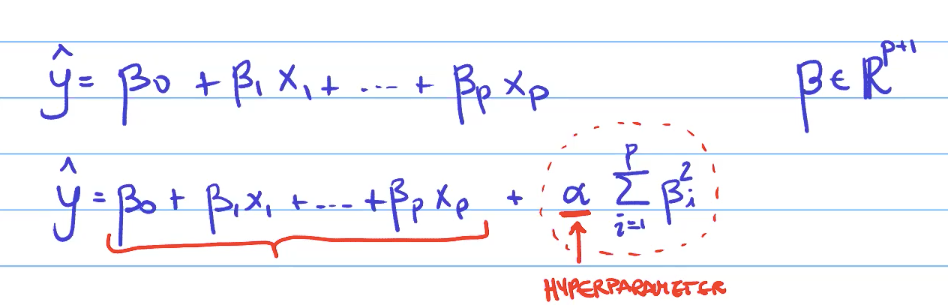 ŷ = β0 + β₁ x₁ + ... + βₚ xₚ β ∈ ℝᵖ⁺¹
ŷ = β₀ + β₁x₁ + ... + βₚxₚ + α ∑ᵢ₌₁ᵖ βᵢ²
HYPERPARAMETER